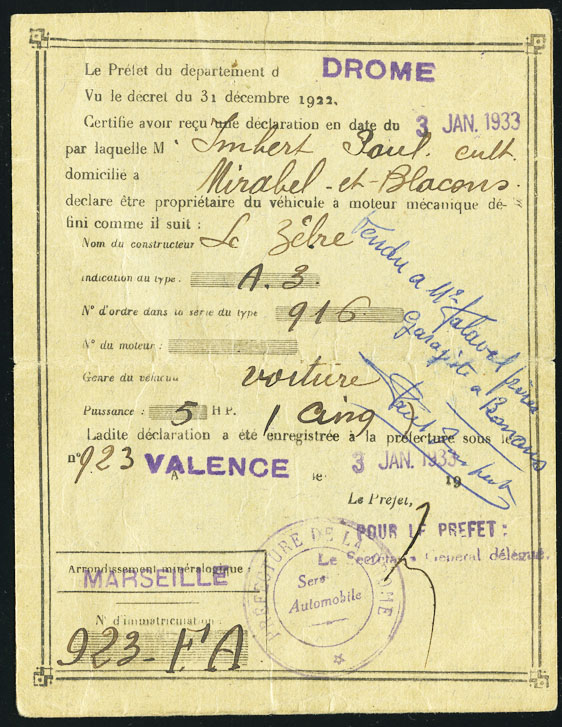 Le Préfet du département d DROME
Vu le décret du 31 décembre 1922,
Certifie avoir reçu une déclaration en date du 3 JAN. 1933
par laquelle M Imbert Paul. cult.
domicilié à Mirabel-et-Blacons.
declare être propriétaire du véhicule à moteur mécanique dé-
fini comme il suit :
Nom du constructeur Le Zèbre
Indication du type : A. 3.
N° d'ordre dans la série du type 916
N° du moteur :
Genre du véhicule voiture
Puissance : 5 HP. ( cinq )
Ladite déclaration a été enregistrée à la préfecture sous le
n° 923 VALENCE le 3 JAN. 1933 19
Le Préfet,
POUR LE PREFET :
Le Secrétaire Général délégué.
Vendu a Mr
Garagiste a
Paul Imbert
PREFECTURE DE LA DROME
Serv
Automobile
Arrondissement minéralogique :
MARSEILLE
N° d'immatriculation :
923-FA